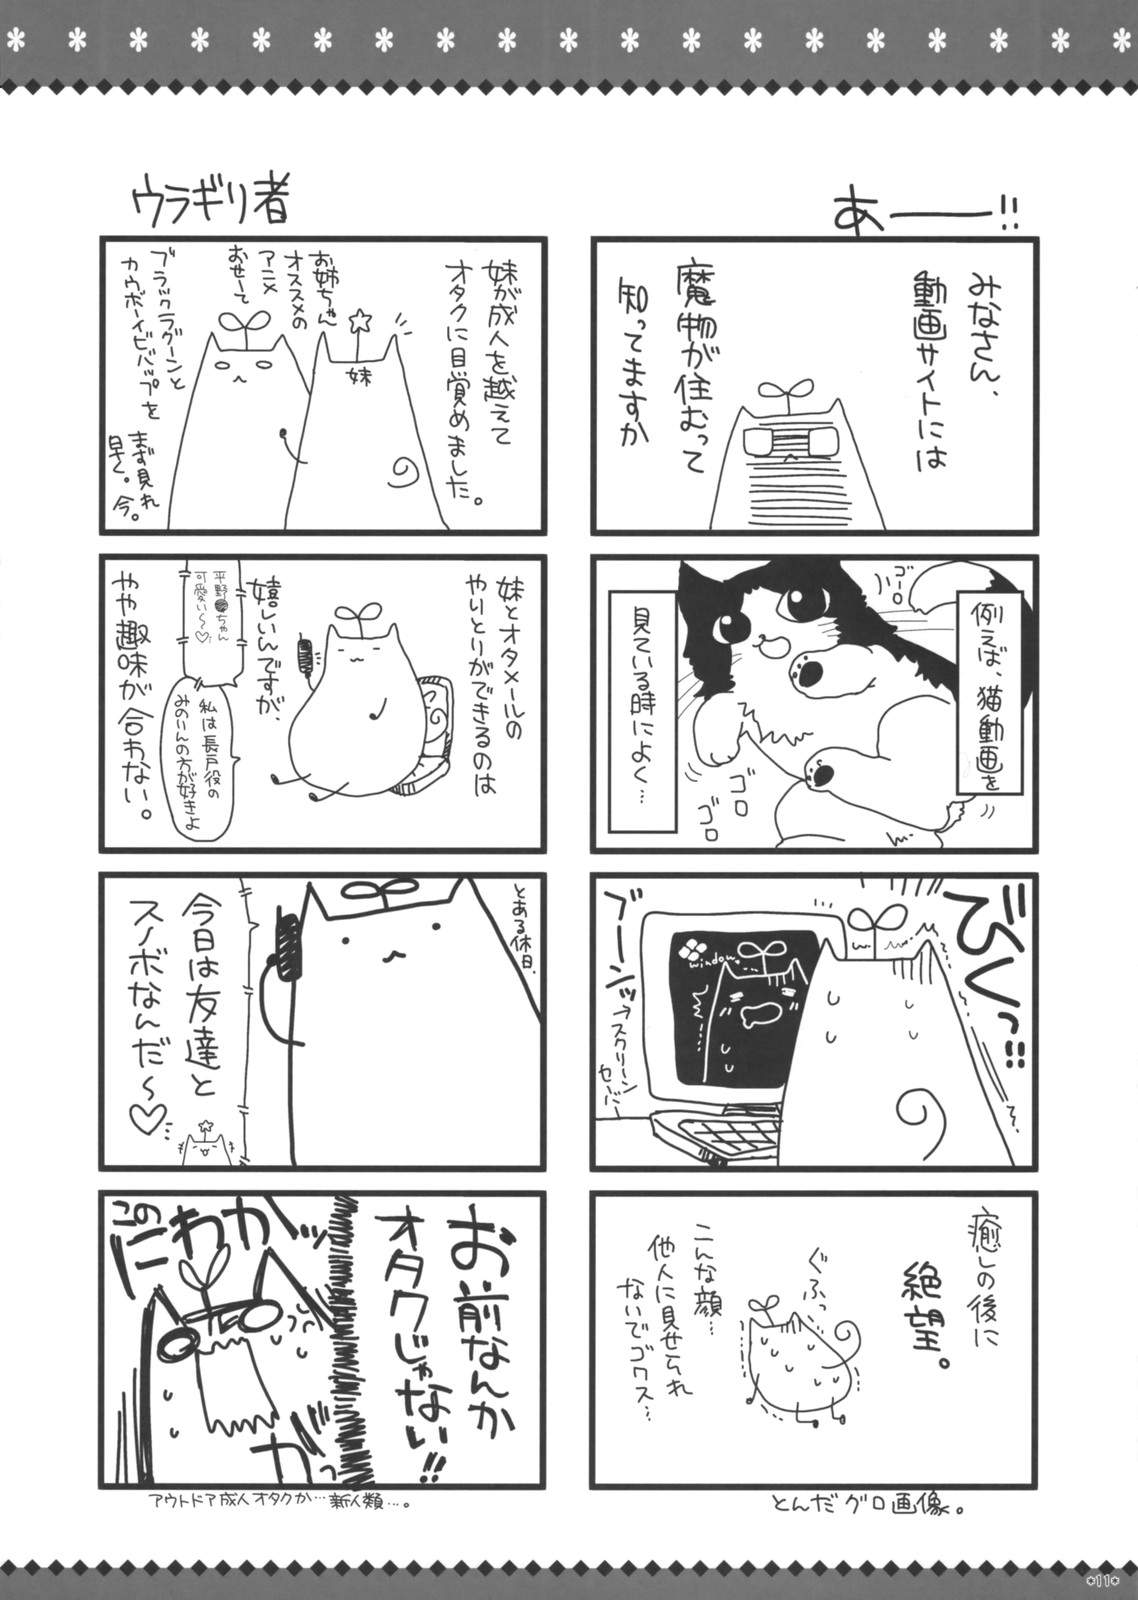 あーーー!!
みなさん、
動画サイトには
魔物が住むって
知ってますか
例えば、猫動画を
見ている時によく…
ゴーロ
ゴロ
ゴロ
びくっ!!!
ブーンッ
→スクリーン
セーバー
window…
癒しの後に
絶望。
ぐふっ
こんな顔…
他人に見せられ
ないでゴワス…
とんだグロ画像。
ウラギリ者
妹が成人を越えて
オタクに目覚めました。
お姉ちゃん
オススメの
アニメ
おせーて
妹
ブラックラグーンと
カウボーイビバップを
まず見れ
早く。今。
妹とオタメールの
やりとりができるのは
嬉しいんですが、
平野●ちゃん
可愛い〜♡
私は長戸役の
みのりんの方が好きよ
やや趣味が合わない。
とある休日、
今日は友達と
スノボなんだ〜♡
お前なんか
オタクじゃない!!
この
にわかッ
カッ
アウトドア成人オタクか…新人類…。
*11*